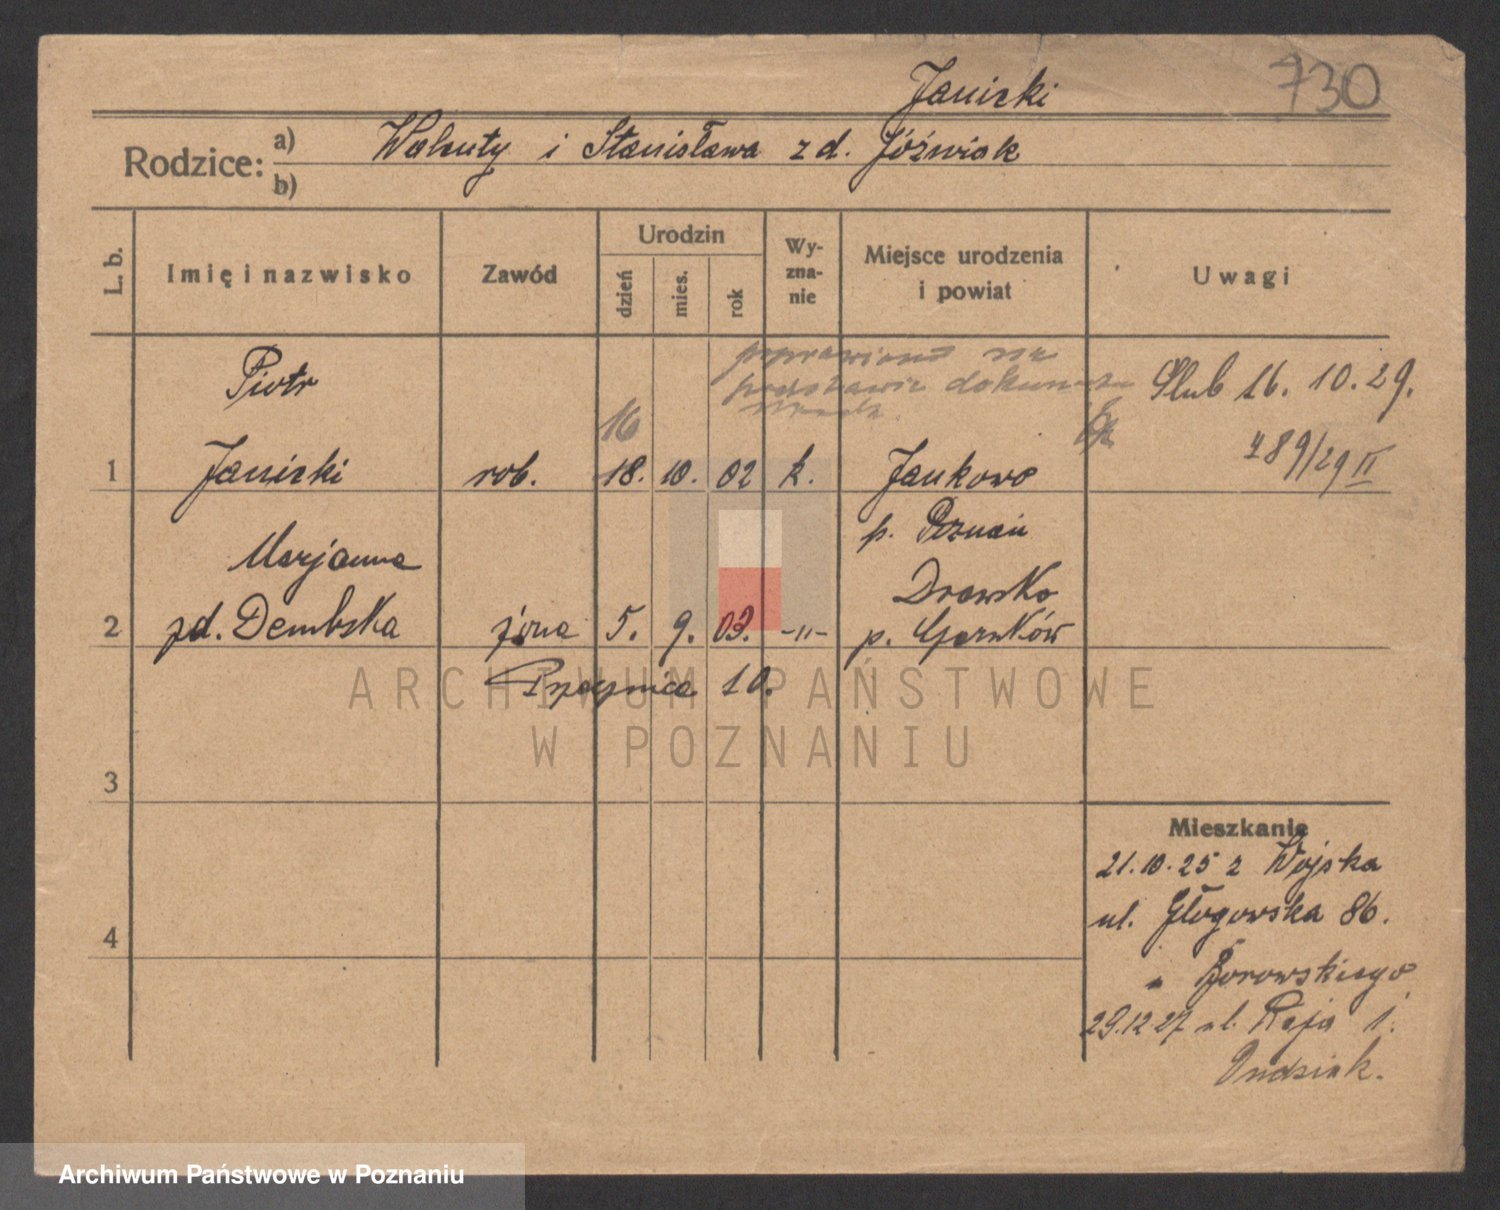 Janicki
730
Rodzice:
a) Walenty i Stanisława z d. Jóźwiak
b)
L. b.
Imię i nazwisko
Zawód
Urodzin
dzień
mies.
rok
Wy-
zna-
nie
Miejsce urodzenia
i powiat
Uwagi
poprawiono na
podstawie dokum
Piotr
16
Ślub 16. 10. 29.
1 Janicki rob. 18. 10. 02 k. Jankowo
789/29 II
p. Poznań
Marjanna
Drawsko
2 zd. Dembska żona 5. 9. 03. -"- p. Czarnków
10.
3
4
Mieszkanie
21.10.25 z Wojska
ul. Głogowska 86.
" Borowskiego
29.12.27 ul. Reja 1.
ARCHIWUM PAŃSTWOWE
W POZNANIU
Archiwum Państwowe w Poznaniu